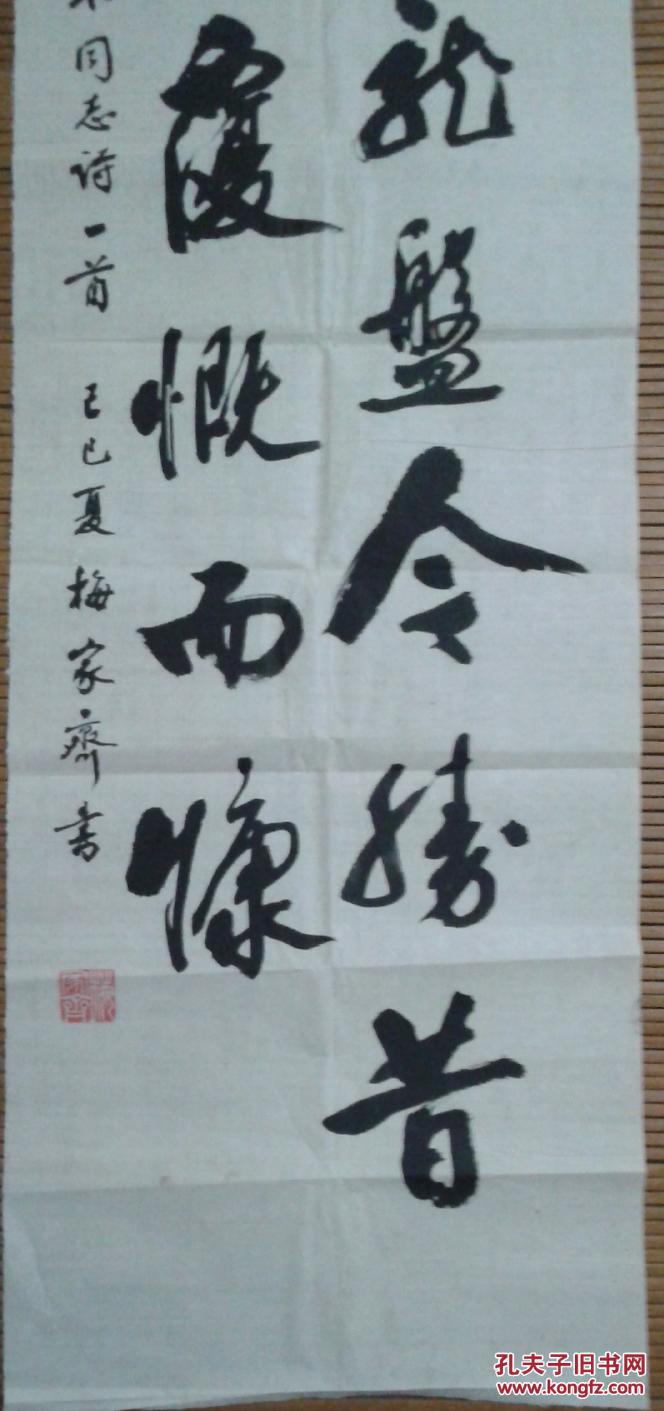 龙盘今胜昔
覆慨而慷
同志诗一首 己巳夏梅家齐书
孔夫子旧书网
www.kongfz.com